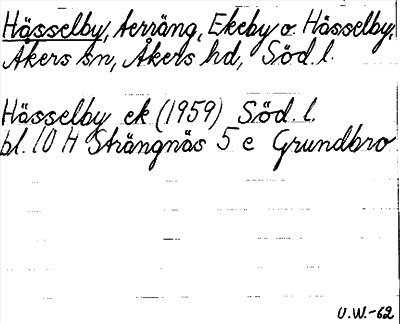 Hässelby, terräng, Ekeby o. Hässelby,
Åkers sn, Åkers hd, Söd. l.
Hässelby ek (1959) Söd. l.
bl. 10 H Strängnäs 5 c Grundbro
U.W.-62